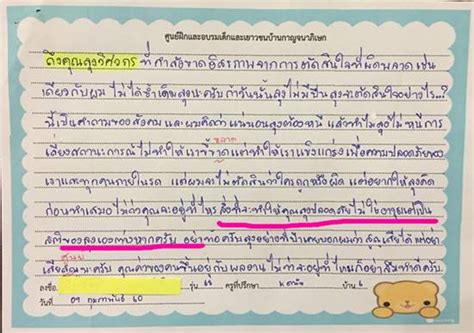 ศูนย์ฝึกและอบรมเด็กและเยาวชนบ้านกาญจนาภิเษก
ถึงคุณลุงวิศวกร ที่กำลังขาดอิสรภาพจากการตัดสินใจที่ผิดพลาด เช่น
เดียวกับผม ไม่ได้ซ้ำเติมลุงนะครับ ถ้าวันนั้นลุงไม่มีปืน ลุงจะตัดสินใจอย่างไร...?
นี่เป็นคำถามของสังคม และผมคิดว่า แน่นอนลุงต้องหนี แล้วทำไมลุงไม่หนี การ
ฉลาด
เลี่ยงสถานะการณ์ไม่ทำให้เราขี้ขลาด แต่ทำให้เราแข็งแกร่ง เพื่อความปลอดภัยของ
เราและทุกคนภายในรถ แต่ผมจะไม่ตัดสินว่าใครถูกหรือผิด แต่อยากให้ลุงคิด
ก่อนทำเสมอ ไม่ว่าคุณจะอยู่ที่ไหร สิ่งที่จะทำให้คุณลุงปลอดภัย ไม่ใช่อาวุธ แต่เป็น
สติของลุงเองต่างหากครับ อย่าท้อครับลุง อย่างที่ป้าเคยบอกผมว่า สูญเสียได้ แต่อย่า
สูญ
เสียศูนย์นะครับ คุณค่าของคนขึ้นอยู่กับผลงาน ไม่ว่าจะอยู่ที่ไหนก็อย่าลืมทำดีครับ
ลงชื่อ. รุ่น ครูที่ปรึกษา บ้าน 6
วันที่ 09 กุมภาพันธ์ 60